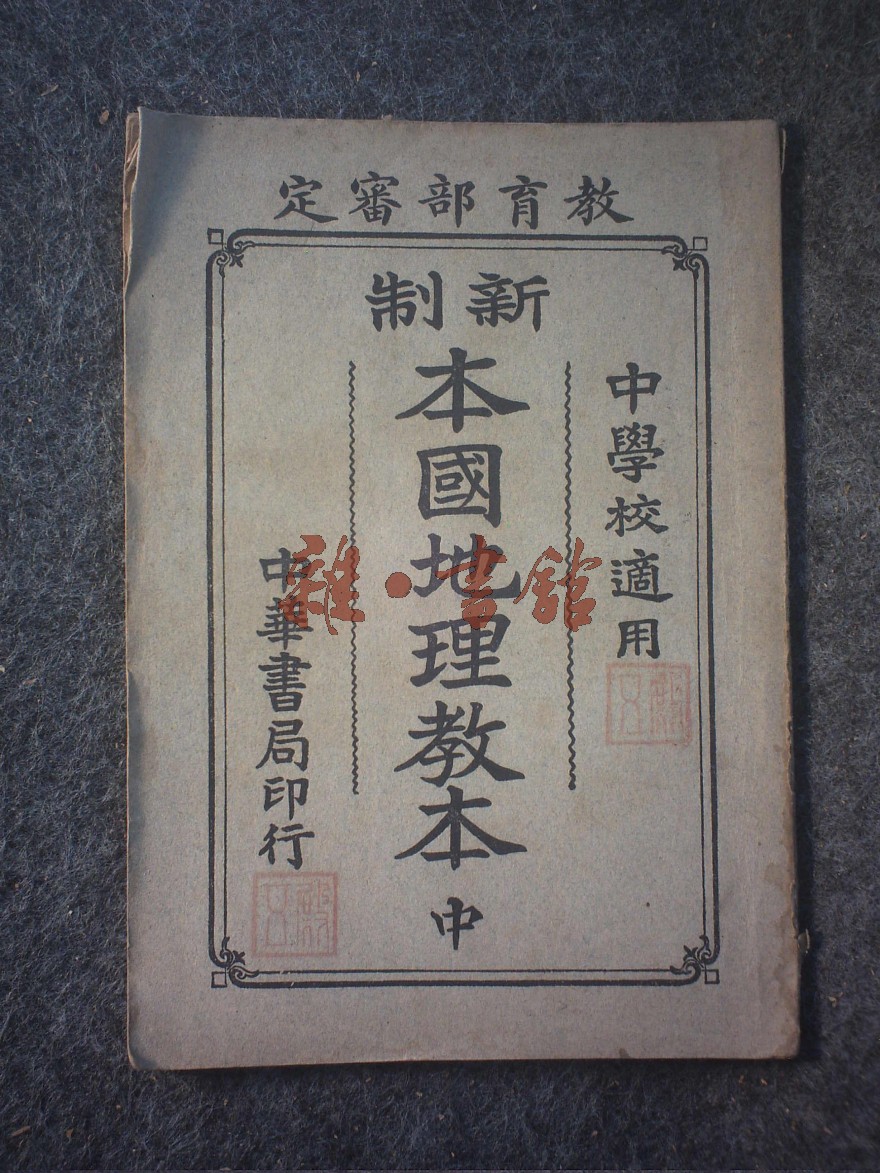 教育部審定
新制
中學校適用
本國地理教本 中
中華書局印行
雜·書館